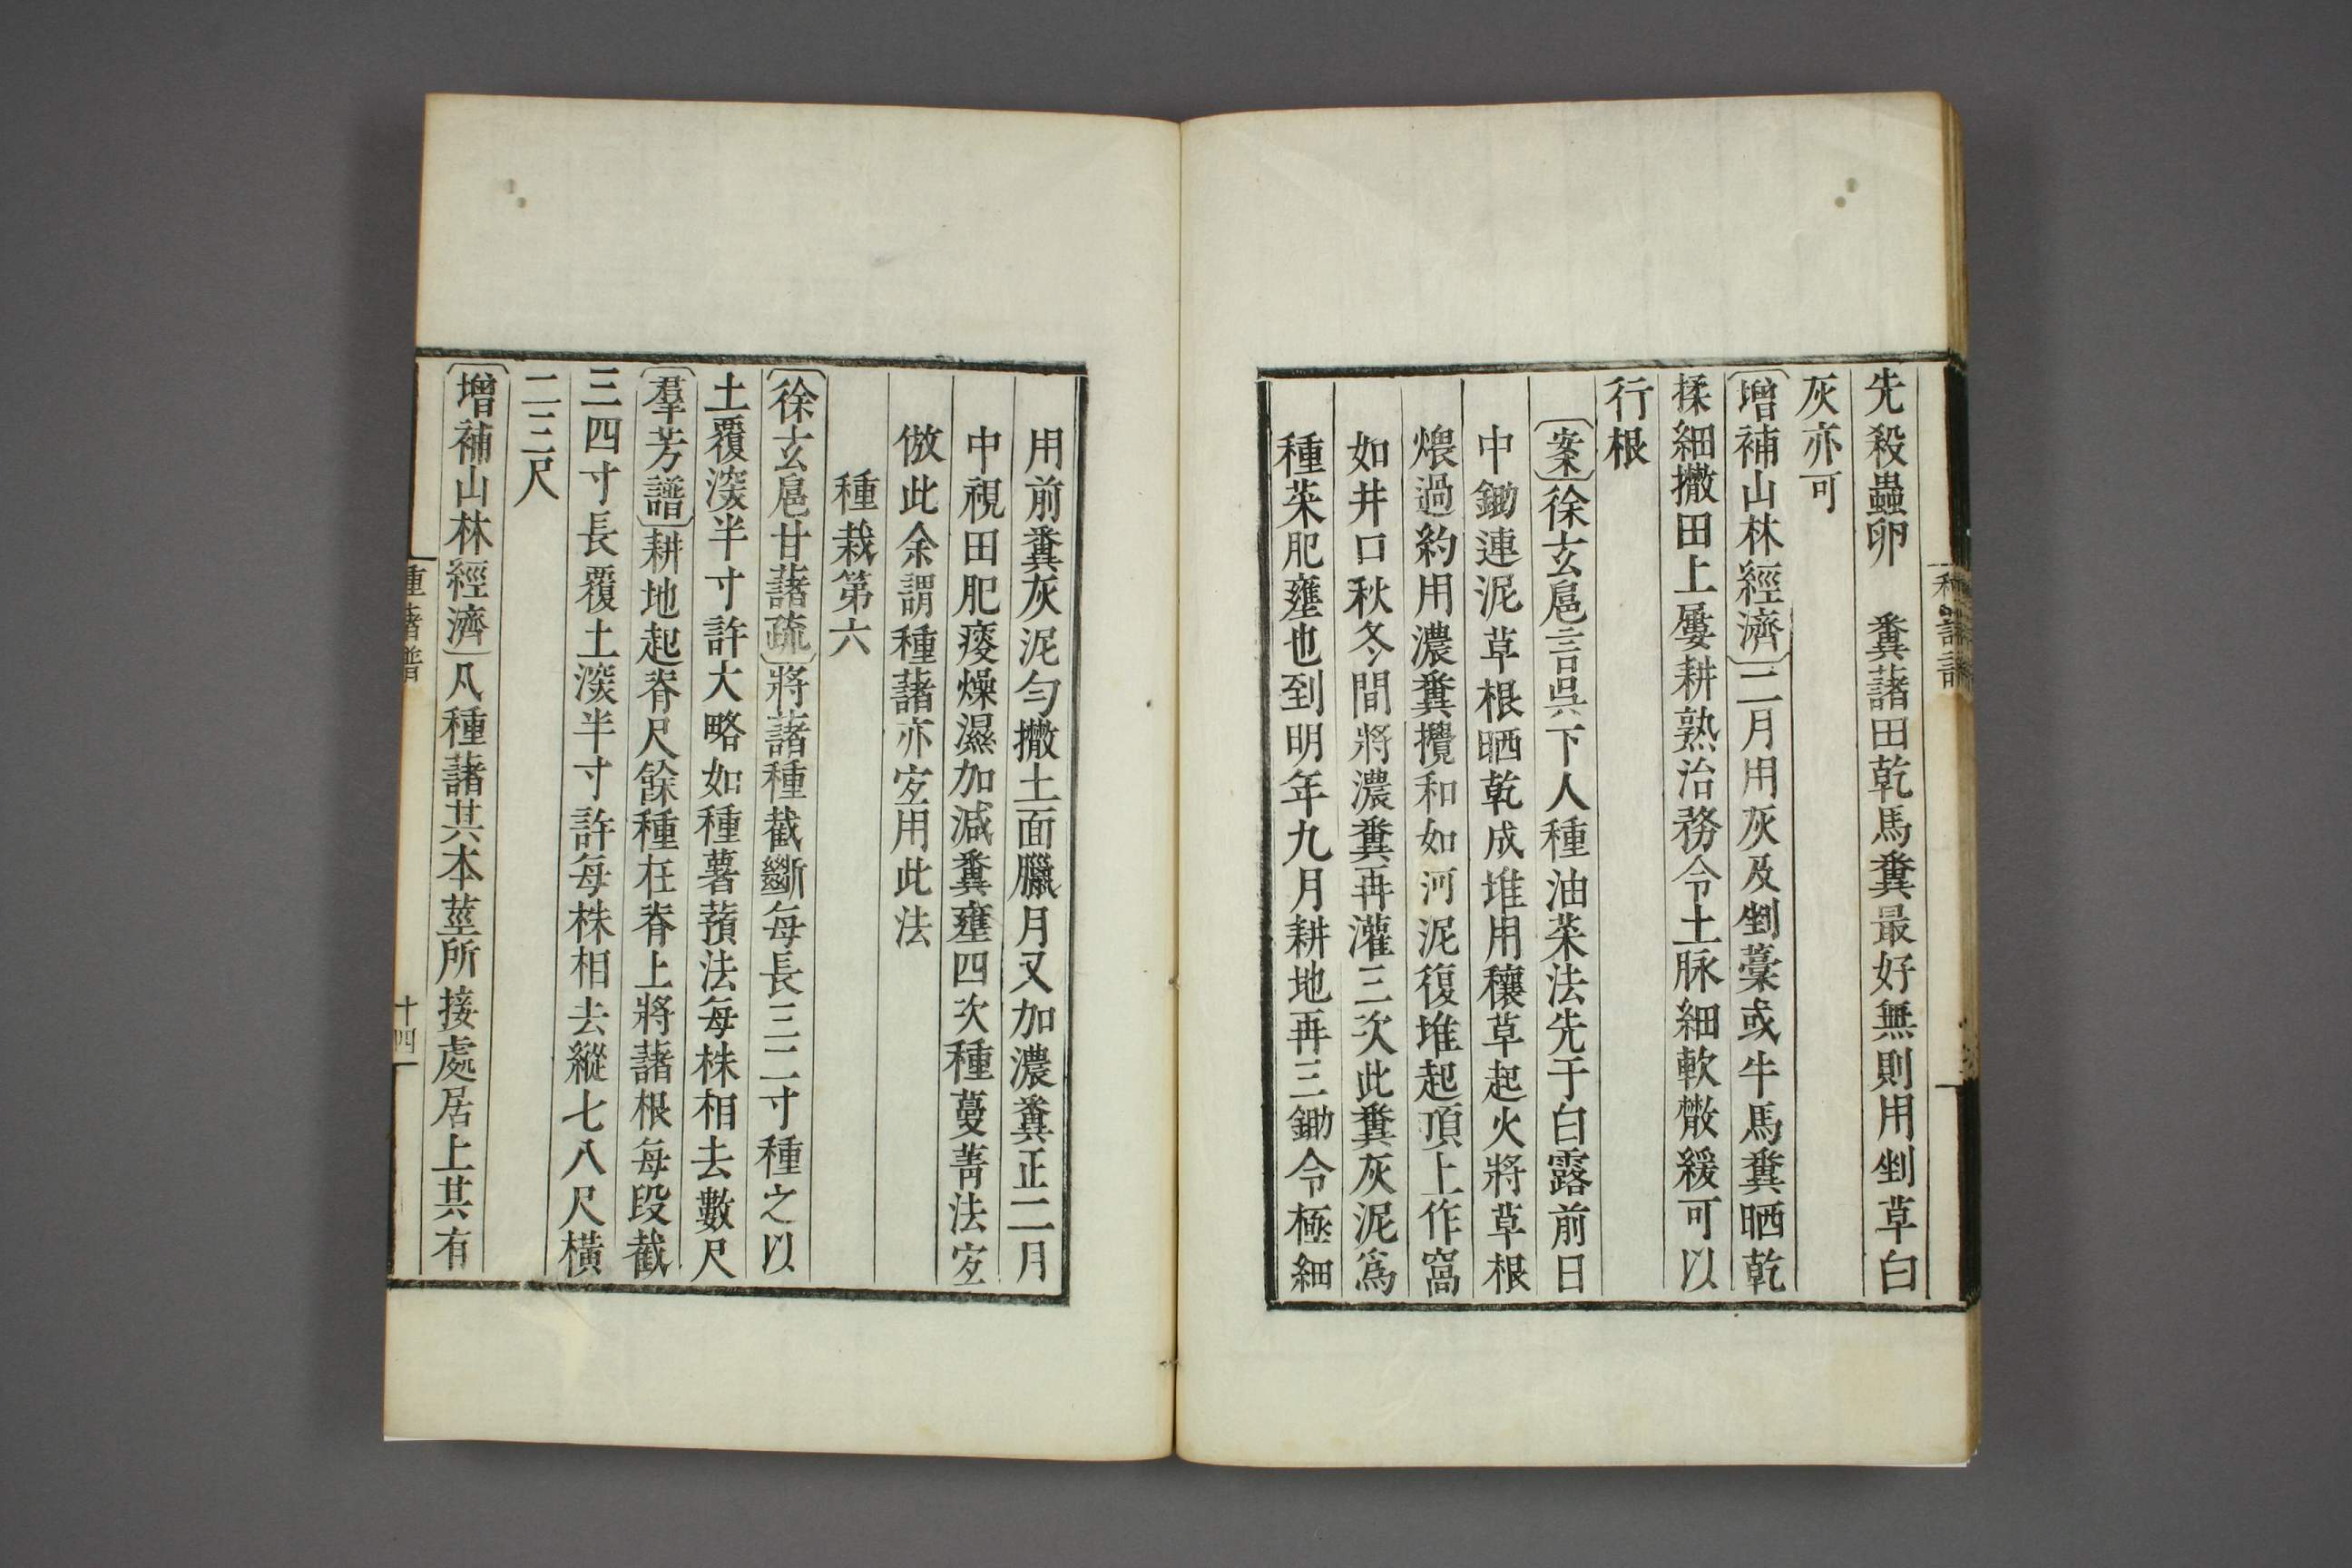 先殺蟲卵　糞藷田乾馬糞最好無則用剉草白
灰亦可
〔增補山林經濟〕二月用灰及剉藁或牛馬糞晒乾
揉細撒田上屢耕熟治務令土脉細軟散緩可以
行根
〔案〕徐玄扈言吳下人種油菜法先于白露前日
中鋤連泥草根晒乾成堆用穰草起火將草根
煨過約用濃糞攪和如河泥復堆起頂上作窩
如井口秋冬間將濃糞再灌三次此糞灰泥爲
種菜肥壅也到明年九月耕地再三鋤令極細
用前糞灰泥勻撒土面臘月又加濃糞正二月
中視田肥痩燥濕加減糞壅四次種蔓菁法宐
倣此余謂種藷亦宐用此法
種栽第六
〔徐玄扈甘藷疏〕將藷種截斷每長三二寸種之以
土覆深半寸許大略如種薯蕷法每株相去數尺
〔羣芳譜〕耕地起脊尺餘種在脊上將藷根每段截
三四寸長覆土深半寸許每株相去縱七八尺橫
二三尺
〔增補山林經濟〕凡種藷其本莖所接處居上其有
種藷譜
十四